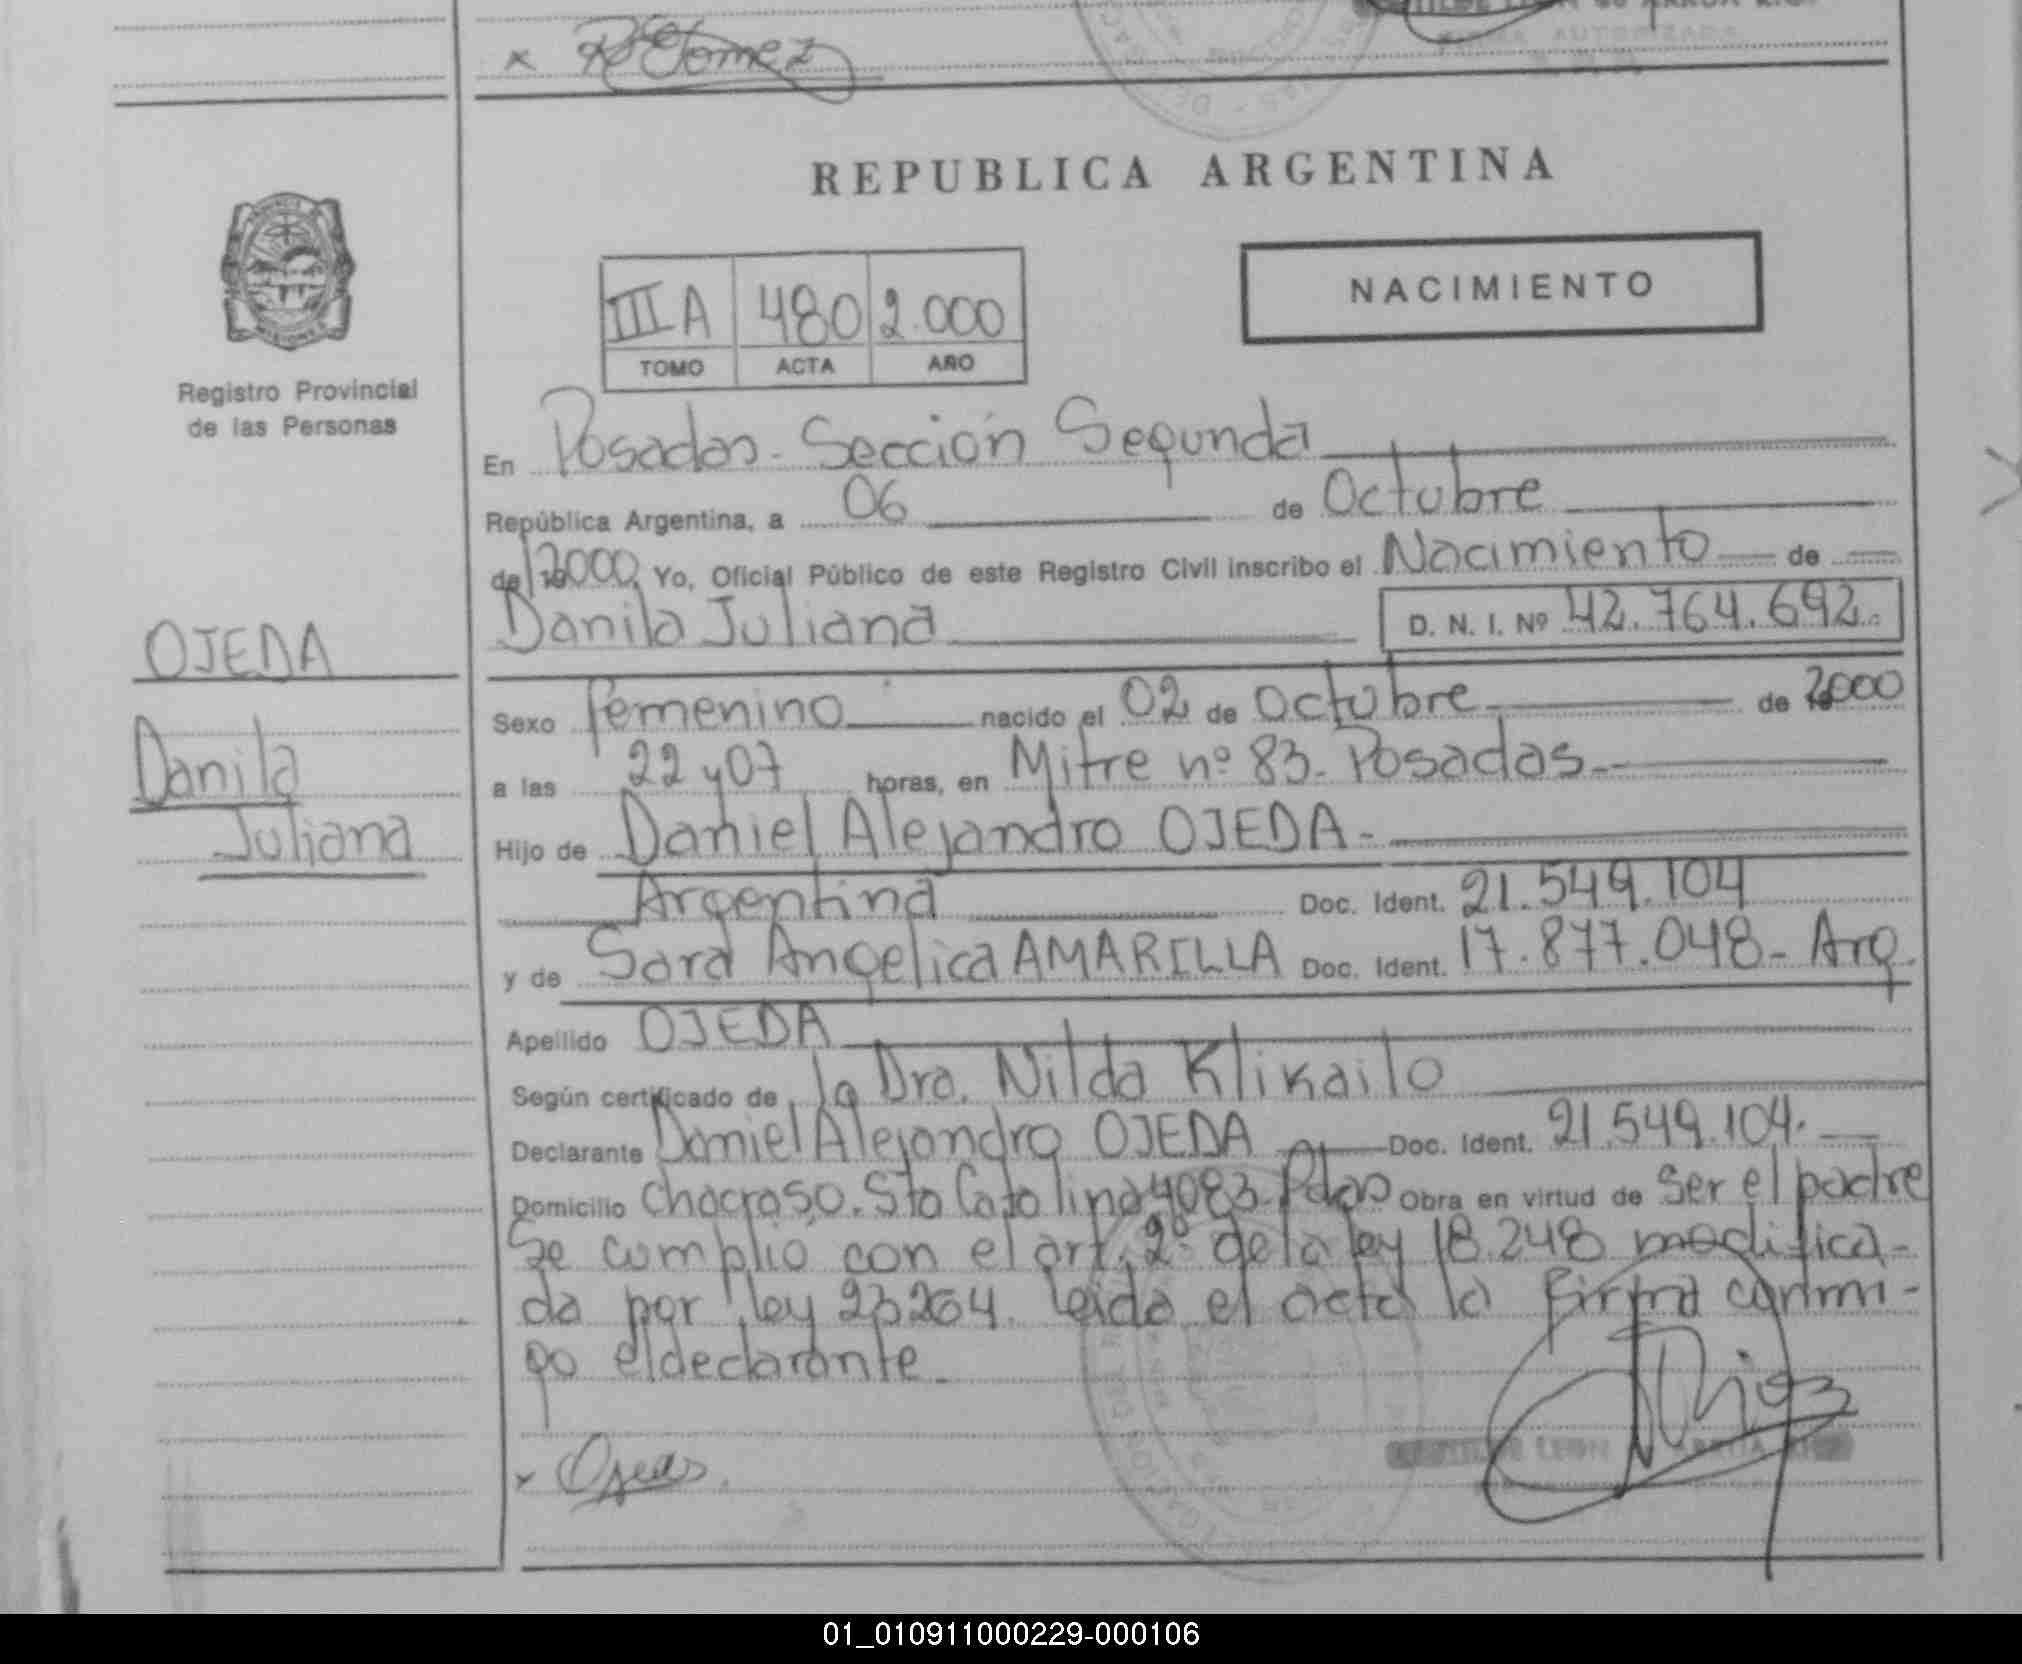 x RGomez
REPUBLICA ARGENTINA
NACIMIENTO
III A 480 2.000
TOMO ACTA AÑO
Registro Provincial
de las Personas
En Posadas - Sección Segunda
República Argentina, a 06 de Octubre
de 2000. Yo, Oficial Público de este Registro Civil inscribo el Nacimiento de
Danila Juliana D. N. I. Nº 42.764.692.
OJEDA
Danila
Juliana
Sexo femenino nacido el 02 de octubre de 2000
a las 22 y 07 horas, en Mitre nº 83 - Posadas -
Hijo de Daniel Alejandro OJEDA -
Argentina Doc. Ident. 21.549.104
y de Sara Angelica AMARILLA Doc. Ident. 17.877.048 - Arg.
Apellido OJEDA
Según certificado de la Dra. Nilda Klikailo
Declarante Daniel Alejandro OJEDA Doc. Ident. 21.549.104.
Domicilio Sta Catalina 4083 - Pdas Obra en virtud de ser el padre
Se cumplio con el art. 2º de la ley 18.248 modifica-
da por ley 23264. leida el acta la firma conmi-
go el declarante.
x Ojeda
01_010911000229-000106